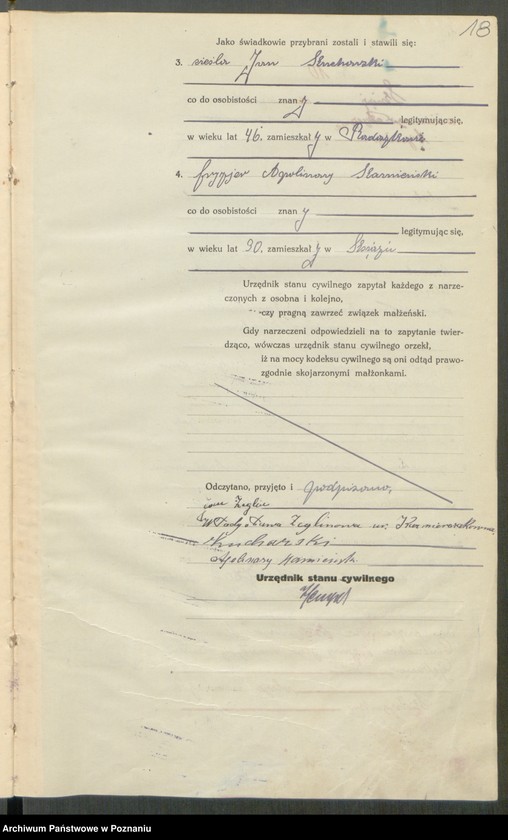 18
Jako świadkowie przybrani zostali i stawili się:
3. cieśla Jan Kucharski
co do osobistości znany
legitymując się,
w wieku lat 46. zamieszkały w
4. fryzjer Apolinary Kamieński
co do osobistości znany
legitymując się,
w wieku lat 30. zamieszkały w Książu
Urzędnik stanu cywilnego zapytał każdego z narze-
czonych z osobna i kolejno,
czy pragną zawrzeć związek małżeński.
Gdy narzeczeni odpowiedzieli na to zapytanie twier-
dząco, wówczas urzędnik stanu cywilnego orzekł,
iż na mocy kodeksu cywilnego są oni odtąd prawo-
zgodnie skojarzonymi małżonkami.
Odczytano, przyjęto i podpisano,
Jan
Kucharski
Apolinary Kamieński
Urzędnik stanu cywilnego
Archiwum Państwowe w Poznaniu